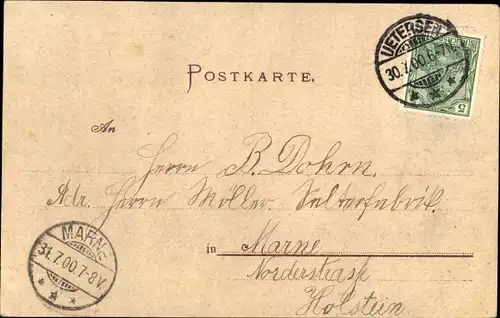 UETERSEN
30.7.00.6-7
5
POSTKARTE.
An
Herrn B. Dohrn.
Adr. Herrn Möller. Selterfabrik.
in Marne
Norderstrasse
Holstein
MARNE
31.7.00.7-8V.